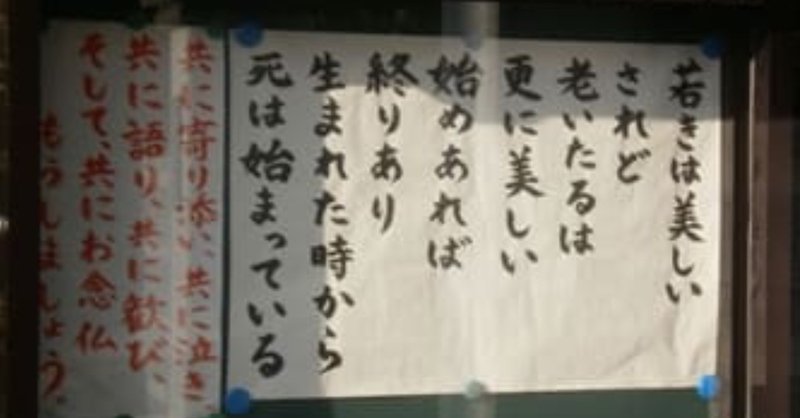 若きは美しい
されど
老いたるは
更に美しい
始めあれば
終りあり
生まれた時から
死は始まっている
共に寄り添い、共に泣き、
共に語り、共に歓び、
そして、共にお念仏
もうしましょう。